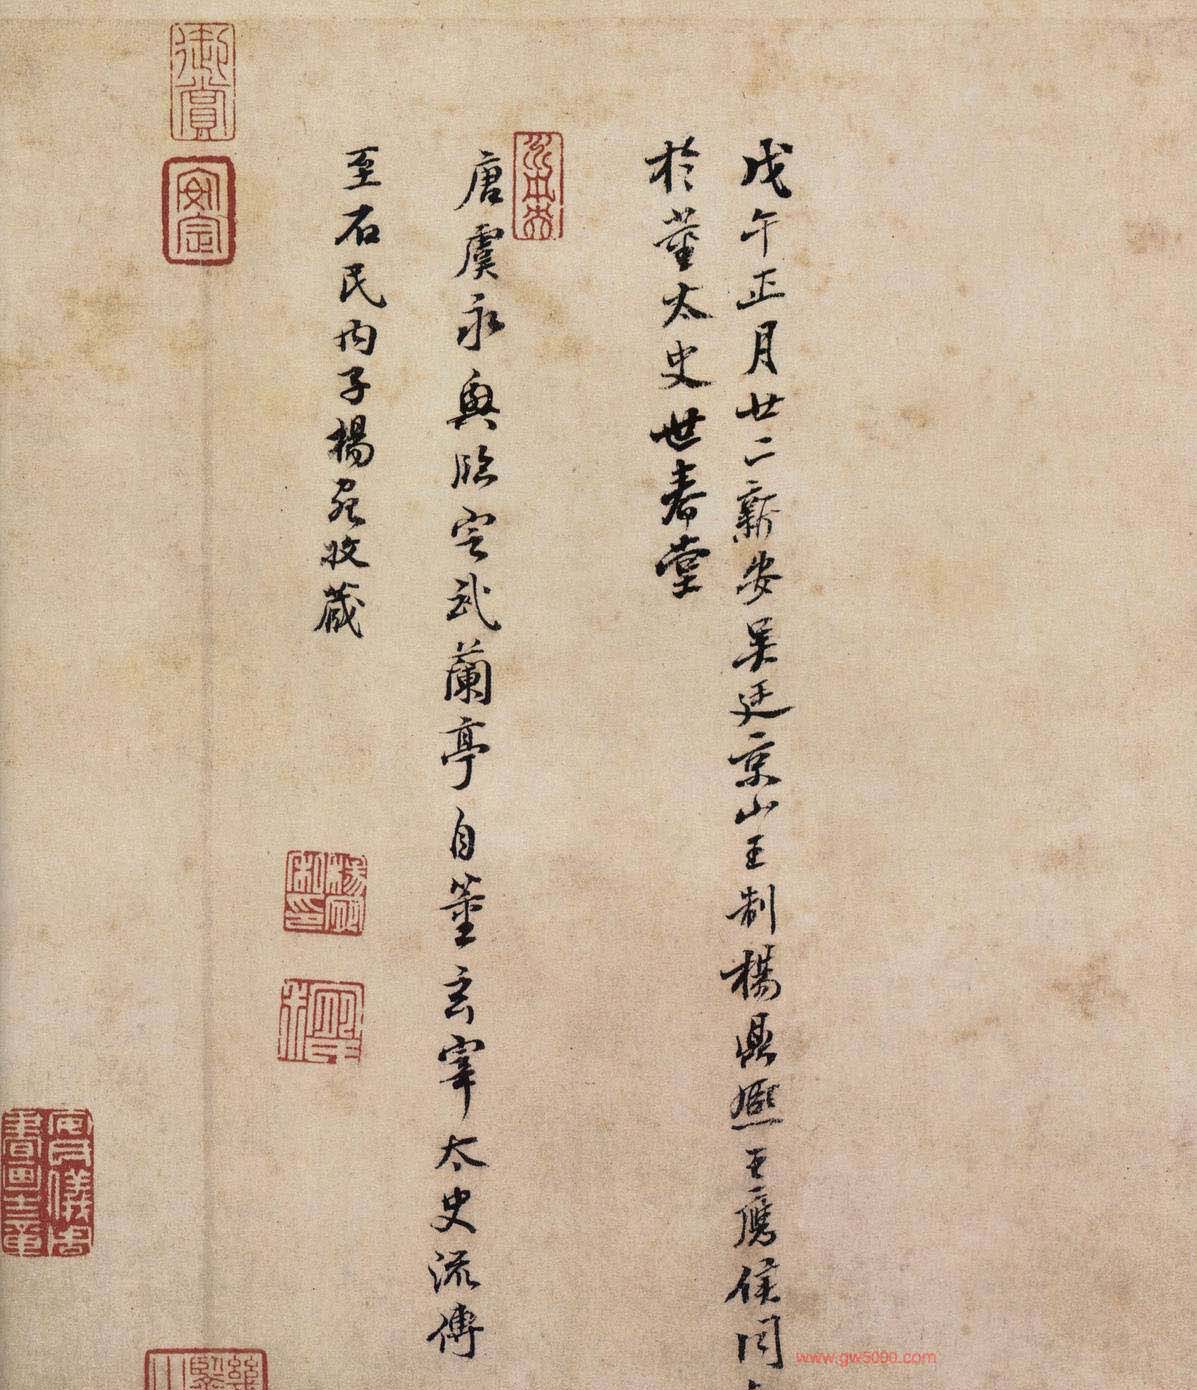 戊午正月廿二新安吴廷京山王制楊鼎熙王應侯同
於董太史世春堂
唐虞永興臨定武蘭亭自董玄宰太史流傳
至石民内子楊宛收藏
御賞
安定
楊宛
www.gw5000.com